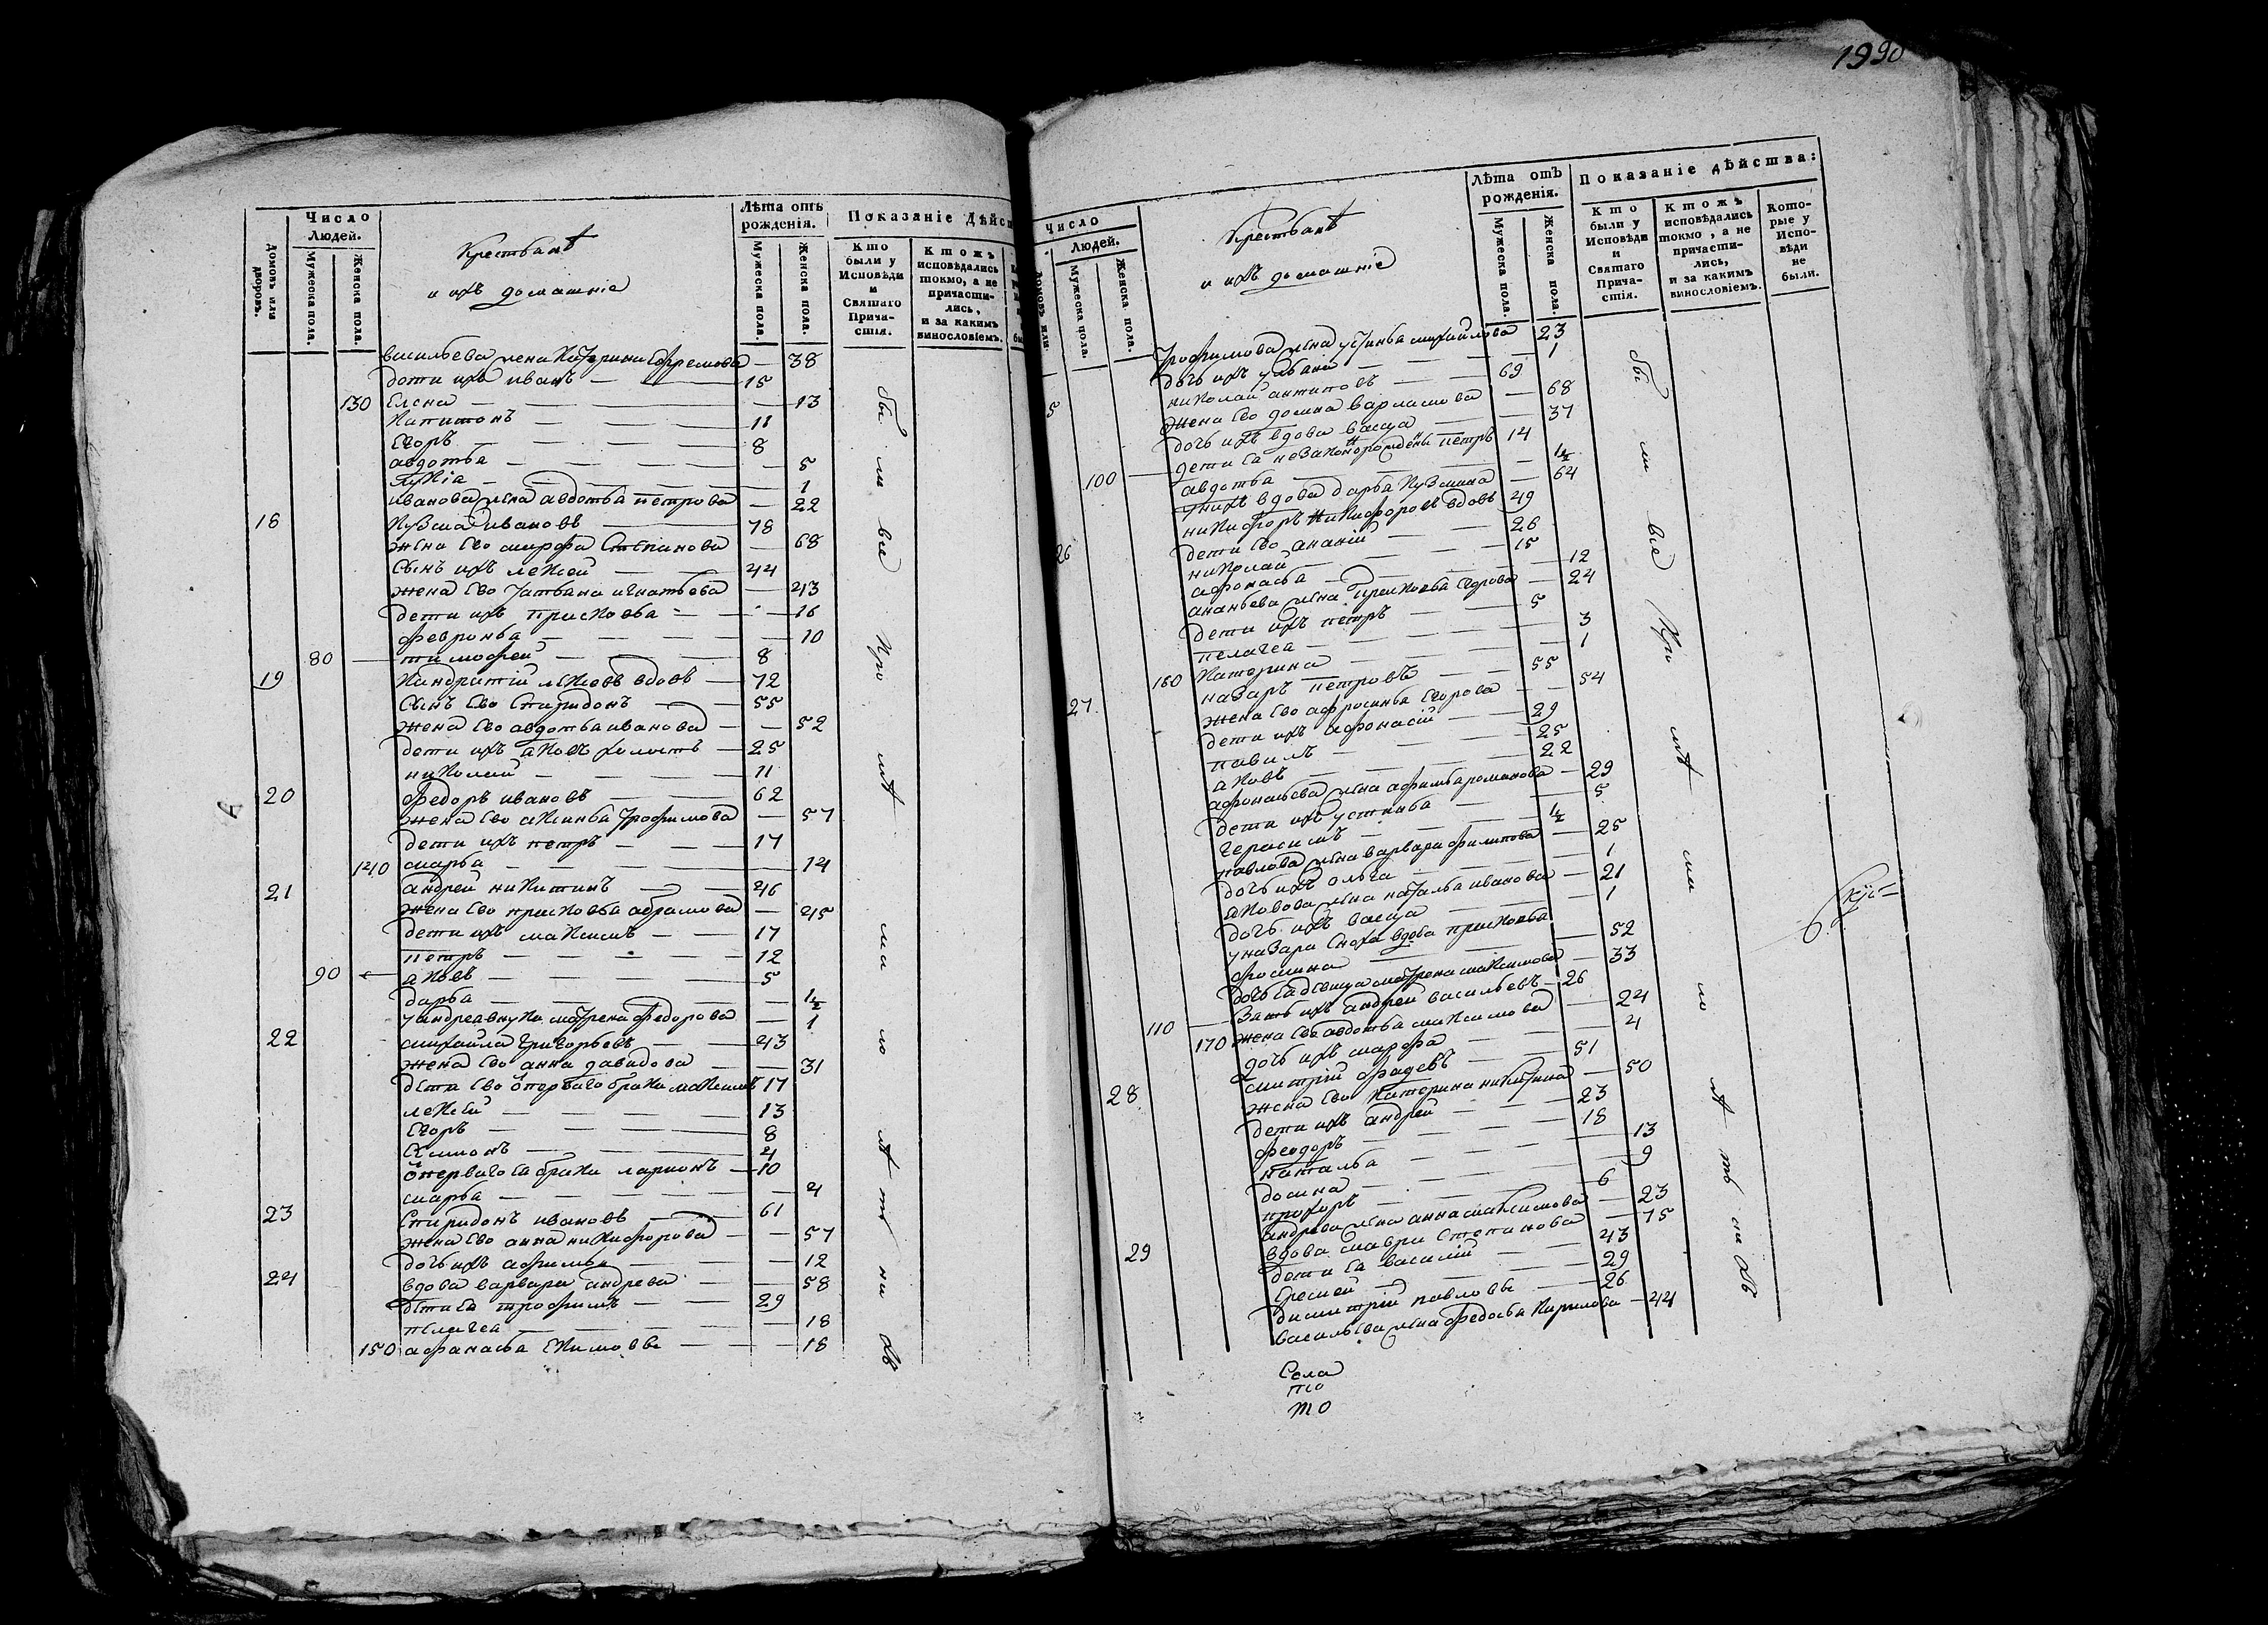 1990
Число Людей.
Лѣта отъ рожденія.
Показаніе дѣйс
домовъ или дворовъ.
Мужеска пола.
Женска пола.
Крестьянѣ
и ихъ домашніе
Мужеска пола.
Женска пола.
Кто были у Исповѣди и Святаго Прича-стія.
Ктожъ исповѣдались токмо, а не причасти-лись, и за какимъ винословіемъ.
васильева жена Катерина Ефремова — 38
дети ихъ иванъ — 15
130 Елена — 13
Капитонъ — 11
Егоръ — 8
авдотья — 5
лукіа — 1
иванова жена авдотья петрова — 22
18 Кузма ивановъ — 78
жена ево марфа Степанова — 68
Сынъ ихъ лексей — 44
жена ево татьяна игнатьева — 43
дети ихъ прасковья — 16
февронья — 10
80 — тимофей — 8
19 Кандратій лексевъ вдовъ — 72
Сынъ ево Спиридонъ — 55
жена ево авдотья иванова — 52
дети ихъ аковъ холостъ — 25
николай — 11
20 федоръ ивановъ — 62
жена ево аксинья трофимова — 57
дети ихъ петръ — 17
140 марья — 14
21 андрей никитинъ — 46
жена ево прасковья абрамова — 45
дети ихъ максимъ — 17
петръ — 12
90 аковъ — 5
дарья — ½
у андреа внука матрена федорова — 1
22 михайла григорьевъ — 43
жена ево анна давидова — 31
дети ево отперваго брака максимъ 17
лексей — 13
Егоръ — 8
Семионъ — 4
отперваго еа брака ларионъ — 10
марья — 4
23 Спиридонъ ивановъ — 61
жена ево анна никифорова — 57
дочь ихъ афимья — 12
24 вдова варвара андрева — 58
дети еа трофимъ — 29
пелагеа — 18
150 афанасья Екимовы — 18
бы ли все При ча ми ло а ть ни хъ
Число Людей.
Лѣта отъ рожденія.
Показаніе дѣйства:
домовъ или
Мужеска пола.
Женска пола.
Крестьянѣ
и ихъ домашніе
Мужеска пола.
Женска пола.
Кто были у Исповѣди и Святаго Прича-стія.
Ктожъ исповѣдались токмо, а не причасти-лись, и за какимъ винословіемъ.
Кото-рые у Испо-вѣди не были.
Трофимова жена устинья михайлова 23
дочь ихъ ульяна — 1
5 николай антиповъ — 69
жена ево домна варламова — 68
дочь ихъ вдова васса — 37
100 — дети еа незаконорожденъ петръ 14
авдотья — ½
у нихъ вдова дарья Кузмина — 64
26 никифоръ Никифоровъ вдовъ 49
дети ево ананій — 26
николай — 15
афонасья — 12
ананьева жена прасковья Егорова — 24
дети ихъ петръ — 5
пелагеа — 3
160 Катерина — 1
27 назаръ петровъ — 55
жена ево афросинья Егорова — 54
дети ихъ афонасій — 29
павилъ — 25
аковъ — 22
афонасьева жена афимья романова — 29
дети ихъ устинья — 5
герасимъ — ½
павлова жена варвара филипова — 25
дочь ихъ ольга — 1
аковова жена наталья иванова — 21
дочь ихъ васса — 1
у назара Сноха вдова прасковья
фомина — 52
дочь еа девица матрена максимова — 33
110 — Зать ихъ андрей васильевъ — 26
170 жена ево авдотья максимова — 24
дочь ихъ марфа — 4
28 митрій фадевъ — 51
жена ево Катерина никитина — 50
дети ихъ андрей — 23
феодоръ — 18
наталья — 13
домна — 9
прохоръ — 6
андрева жена анна максимова — 23
29 вдова мавра Степанова — 75
дети еа василій — 43
Еремей — 29
димитрій павловы — 26
васильева жена федосья Кирилова — 44
бы ли все При ча ми ло а ть ни хъ
Села
по
то